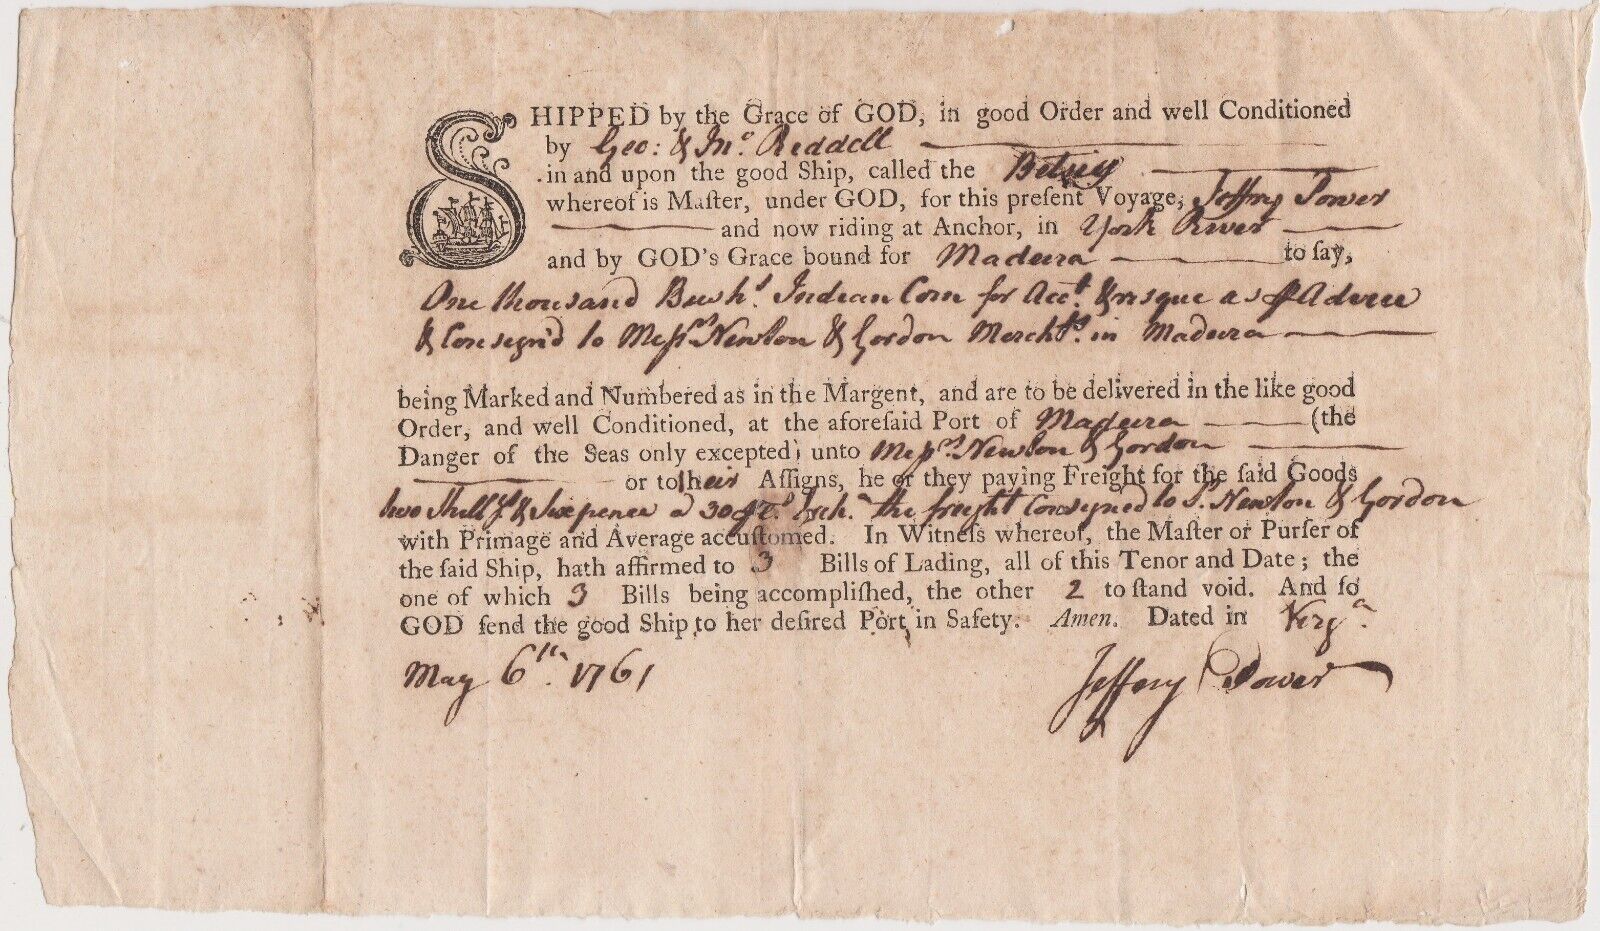 SHIPPED by the Grace of GOD, in good Order and well Conditioned
by Geo: & Jnº. Riddell
in and upon the good Ship, called the Betsey
whereof is Maſter, under GOD, for this preſent Voyage, Jeffry Power
and now riding at Anchor, in York River
and by GOD's Grace bound for Madeira to ſay,
One thousand Bushs. Indian Corn for Acct. & risque as Advice
& Consign'd to Messrs. Newton & Gordon Merchts. in Madeira
being Marked and Numbered as in the Margent, and are to be delivered in the like good
Order, and well Conditioned, at the aforeſaid Port of Madeira (the
Danger of the Seas only excepted) unto Messrs. Newton & Gordon
or to their Aſſigns, he or they paying Freight for the ſaid Goods
two Shillgs & Sixpence a 30 Exch.a the freight Consigned to Sd. Newton & Gordon
with Primage and Average accuſtomed. In Witneſs whereof, the Maſter or Purſer of
the ſaid Ship, hath affirmed to 3 Bills of Lading, all of this Tenor and Date; the
one of which 3 Bills being accompliſhed, the other 2 to ſtand void. And ſo
GOD ſend the good Ship to her deſired Port in Safety. Amen. Dated in Virga.
May 6th. 1761 Jeffery Power